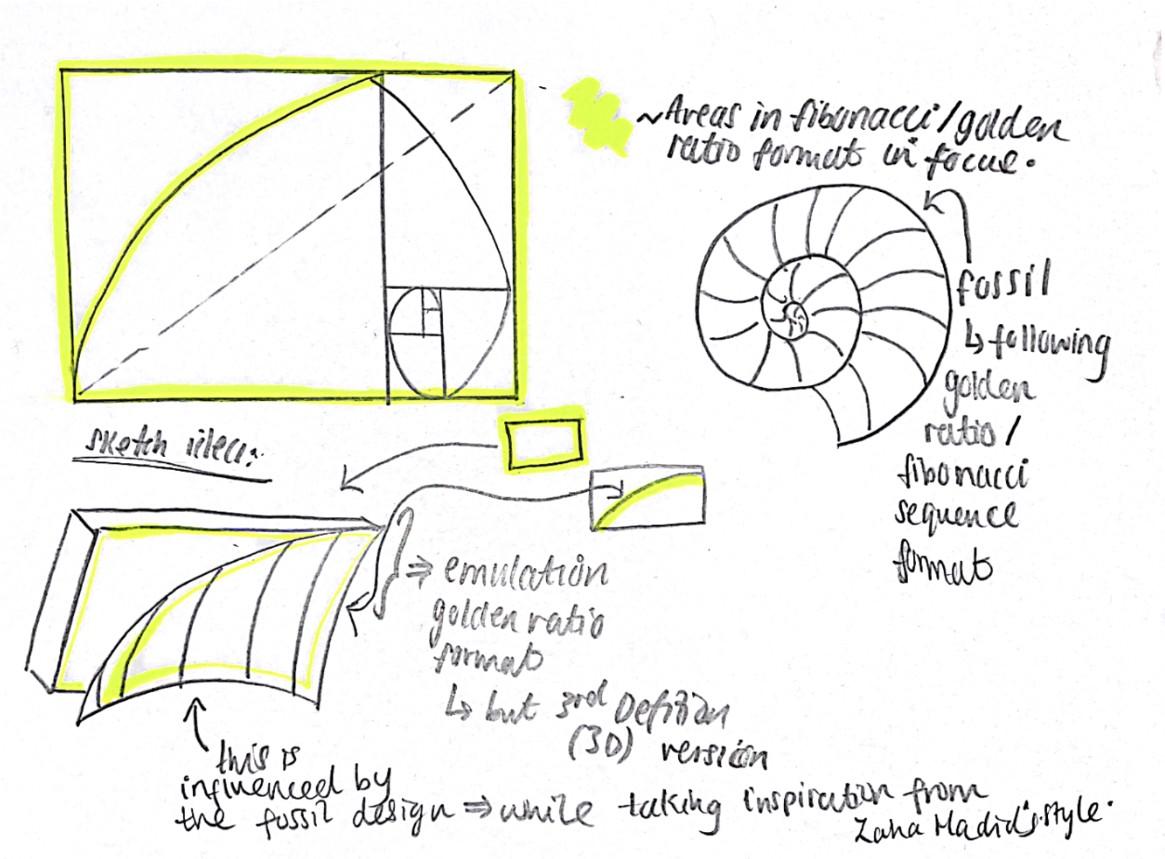 ~Areas in fibonacci/golden
ratio format in focus.
fossil
↳ following
golden
ratio /
fibonacci
sequence
format
sketch idea:
⇒ emulation
golden ratio
format
↳ but 3rd Defitian
(3D) version
this is
influenced by
the fossil design ⇒ while taking inspiration from
Zaha Hadid's style.